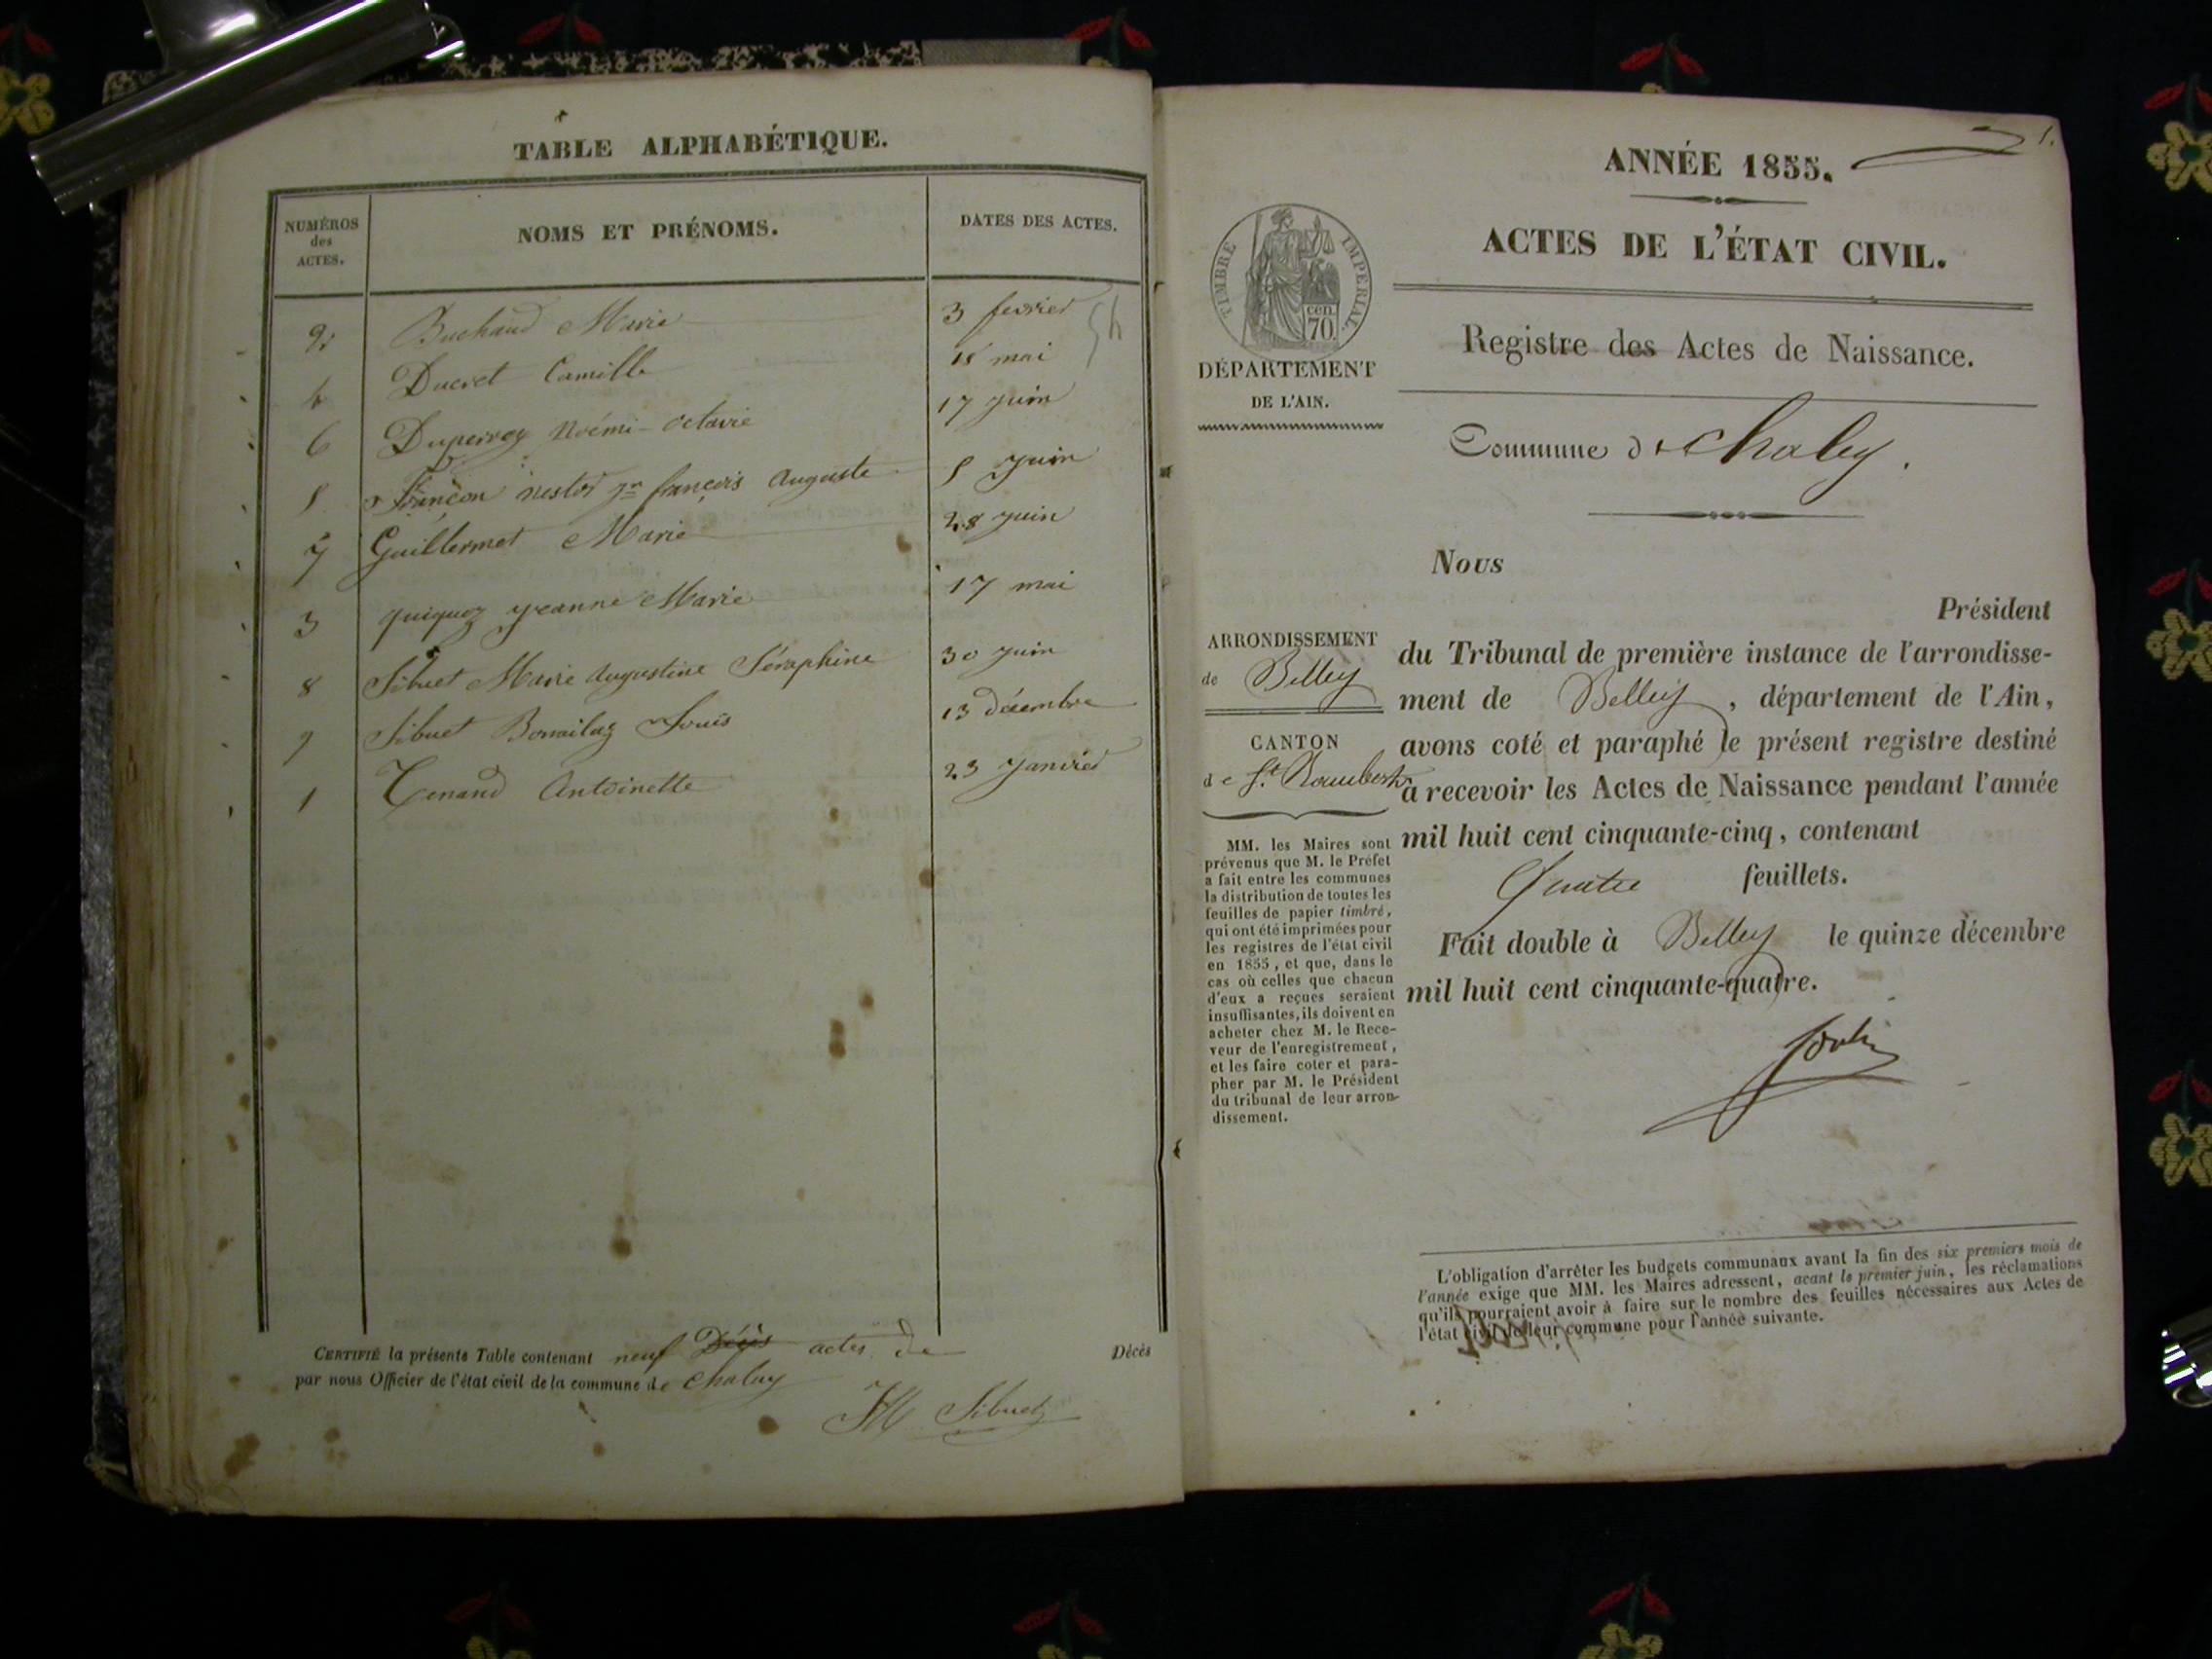 TABLE ALPHABÉTIQUE.
NUMÉROS des ACTES.
NOMS ET PRÉNOMS.
DATES DES ACTES.
2 Buchaud Marie 3 fevrier
4 Ducret Camille 18 mai
6 Duperroy Noémi-octavie 17 juin
5 françon nestor jn françois Auguste 5 juin
7 Guillermet Marie 28 juin
3 quiquoz jeanne Marie 17 mai
8 Sibuet Marie augustine Séraphine 30 juin
9 Sibuet Louis 13 décembre
1 Tenand Antoinette 23 janvier
54
CERTIFIÉ la présente Table contenant neuf Décès actes de Décès
par nous Officier de l'état civil de la commune de chaley
Sibuet
1.
ANNÉE 1855.
ACTES DE L'ÉTAT CIVIL.
TIMBRE IMPÉRIAL.
cen. 70.
DÉPARTEMENT
DE L'AIN.
Registre des Actes de Naissance.
Commune de chaley.
Nous
Président
ARRONDISSEMENT
de Belley
CANTON
de St. Rambert
du Tribunal de première instance de l'arrondisse-
ment de Belley, département de l'Ain,
avons coté et paraphé le présent registre destiné
à recevoir les Actes de Naissance pendant l'année
mil huit cent cinquante-cinq, contenant
Quatre feuillets.
Fait double à Belley le quinze décembre
mil huit cent cinquante-quatre.
MM. les Maires sont
prévenus que M. le Préfet
a fait entre les communes
la distribution de toutes les
feuilles de papier timbré,
qui ont été imprimées pour
les registres de l'état civil
en 1855, et que, dans le
cas où celles que chacun
d'eux a reçues seraient
insuffisantes, ils doivent en
acheter chez M. le Rece-
veur de l'enregistrement,
et les faire coter et para-
pher par M. le Président
du tribunal de leur arron-
dissement.
L'obligation d'arrêter les budgets communaux avant la fin des six premiers mois de
l'année exige que MM. les Maires adressent, avant le premier juin, les réclamations
qu'ils pourraient avoir à faire sur le nombre des feuilles nécessaires aux Actes de
l'état civil de leur commune pour l'année suivante.